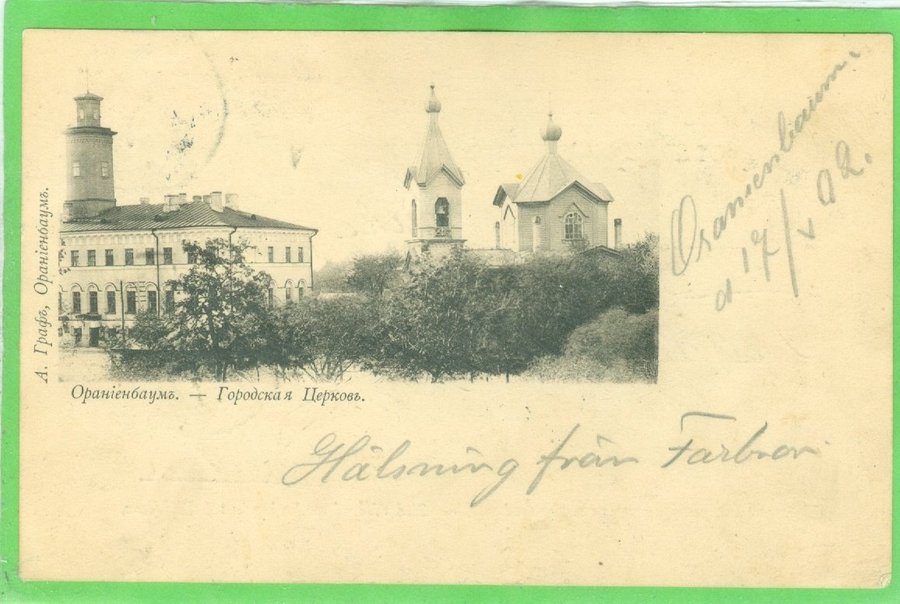 А. Графъ, Ораніенбаумъ.
Ораніенбаумъ. — Городская Церковь.
Oranienbaum
d 17/V 02.
Hälsning från Farbror